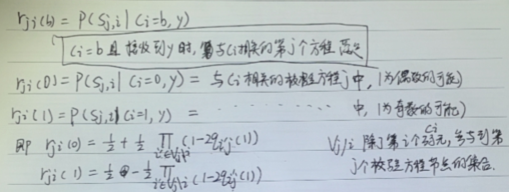 rji(b) = P(Sj,i | Ci=b, y)
Ci=b 且 接收到y时, 第与Ci相关的第j个方程 成立
rji(0) = P(Sj,i | Ci=0, y) = 与Ci相关的校验方程j中, 1为偶数的可能
rji(1) = P(Sj,i | Ci=1, y) = ········· 中, 1为奇数的可能
即 rji(0) = 1/2 + 1/2 ∏ i'∈Vj\i (1-2qi'j(1))
rji(1) = 1/2 - 1/2 ∏ i'∈Vj\i (1-2qi'j(1))
Vj\i 除了第i个Ci, 参与到第
j个校验方程节点的集合.